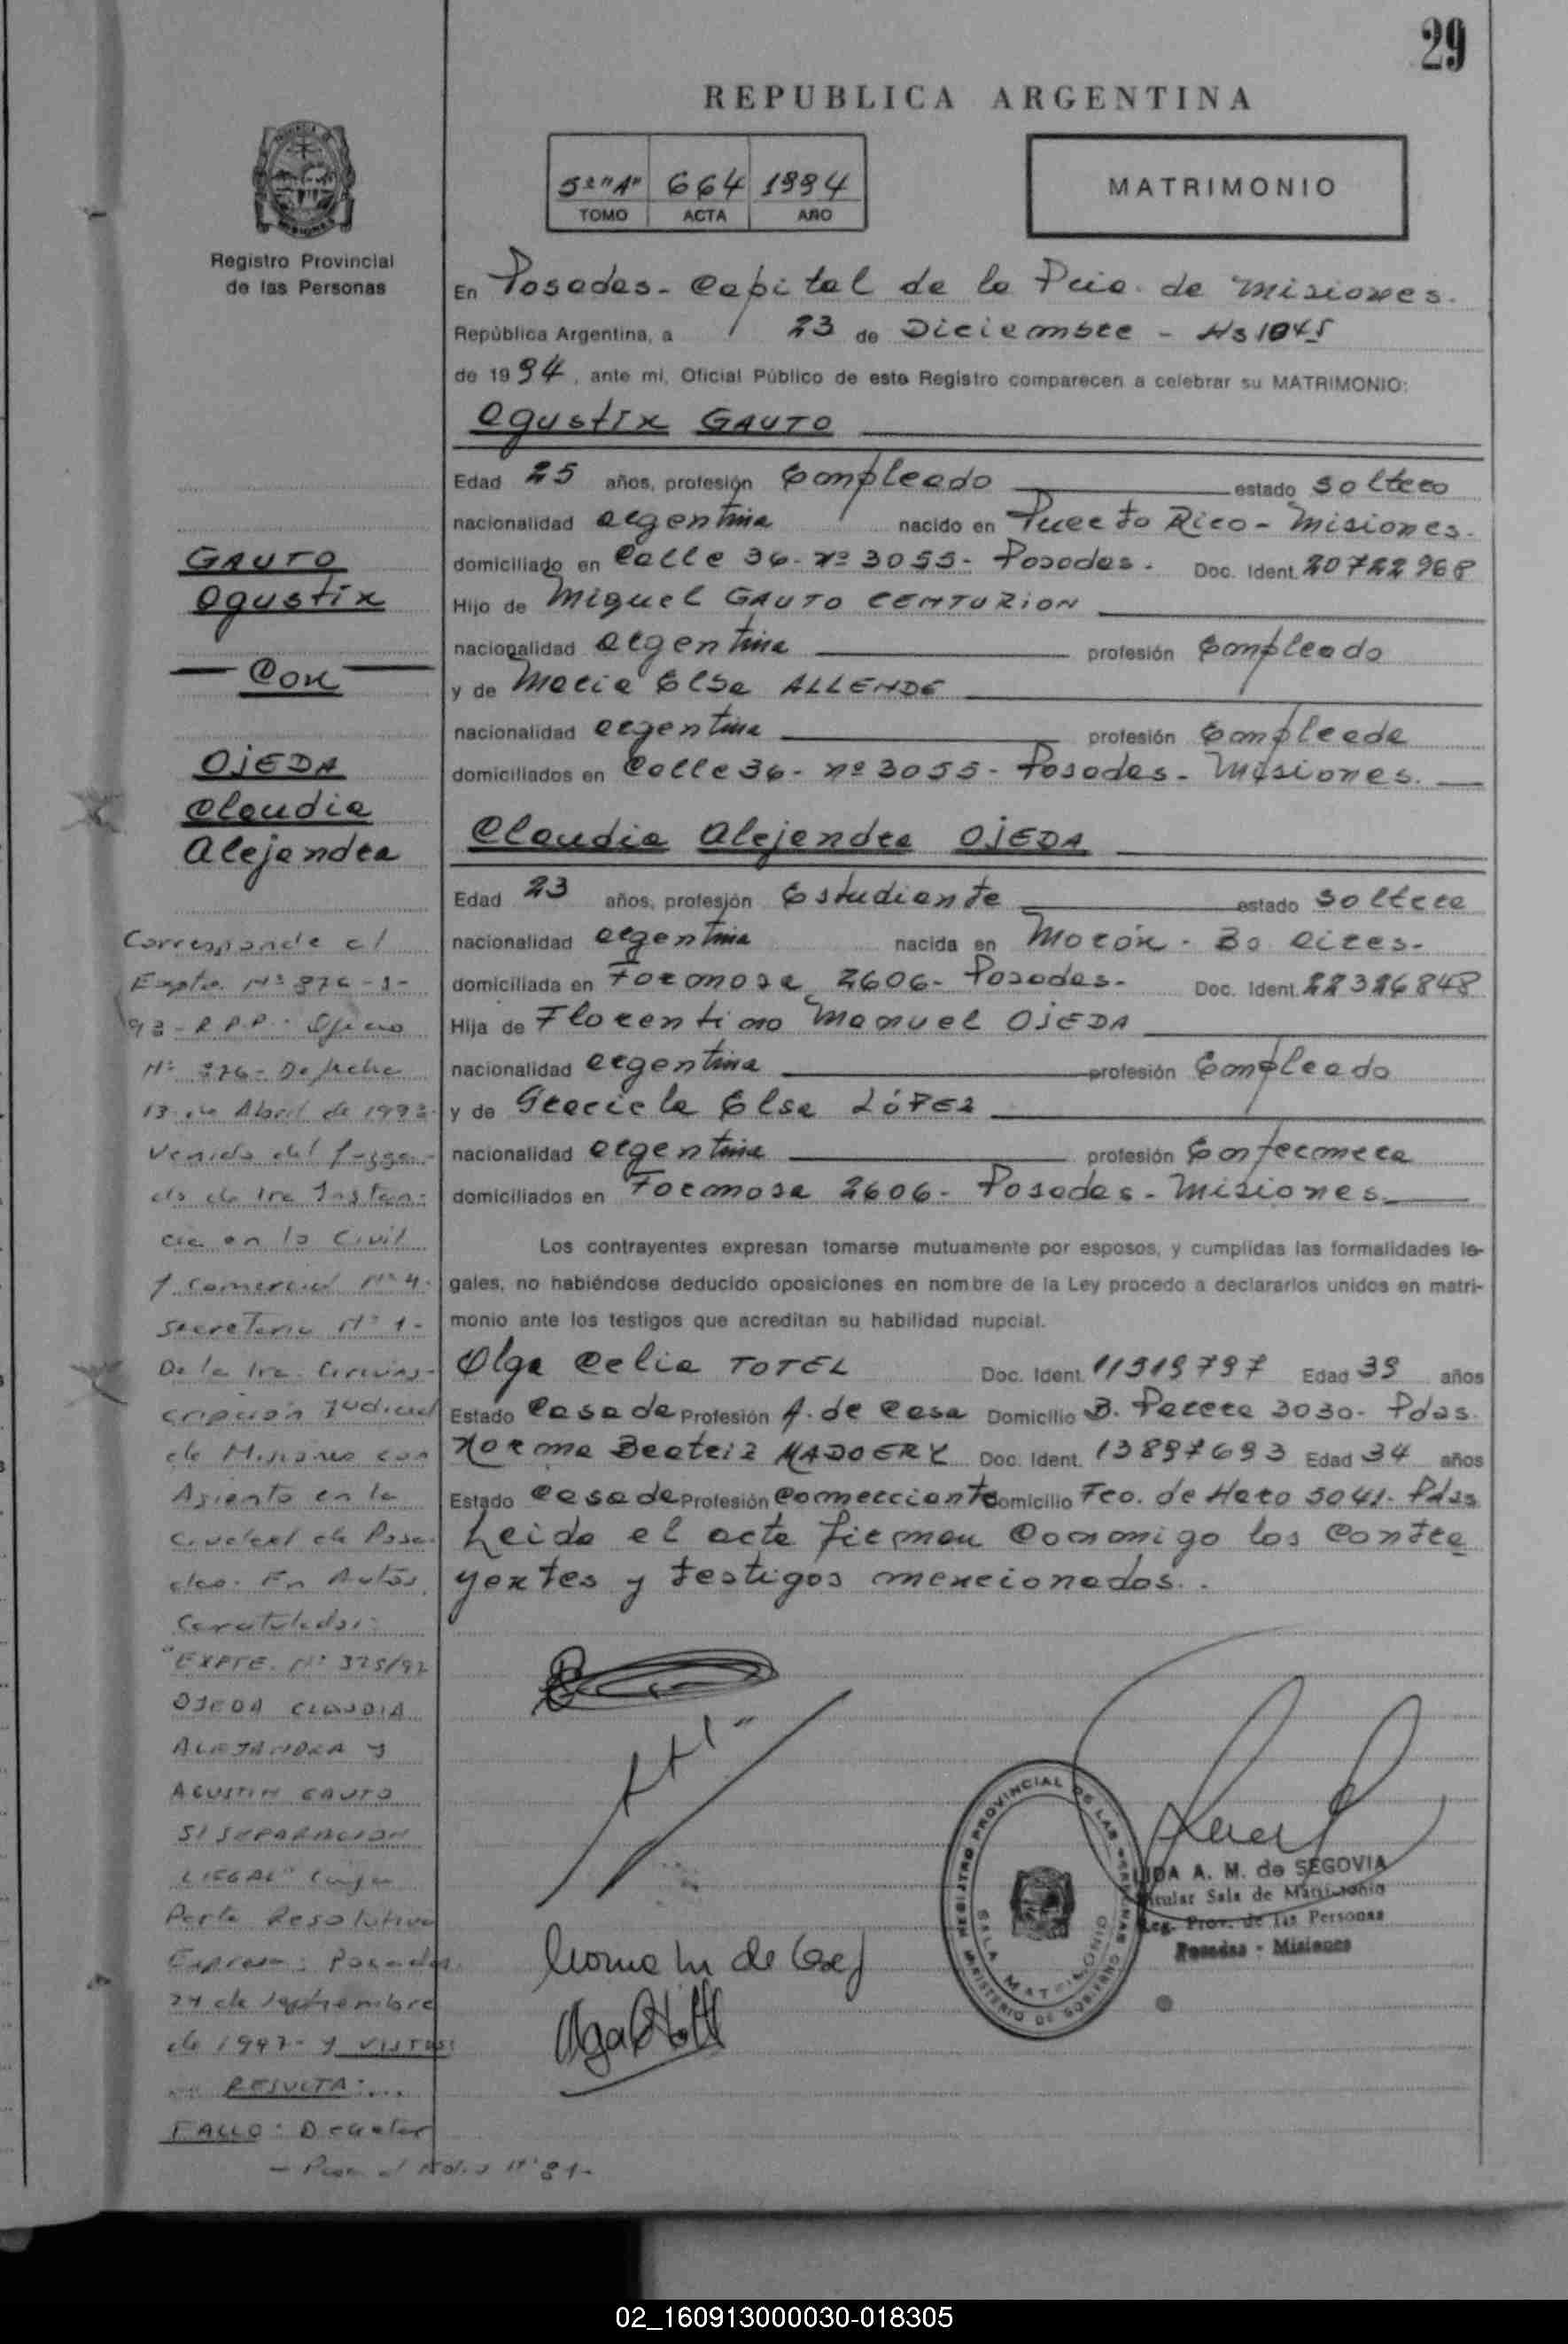 29
REPUBLICA ARGENTINA
5º "A" 664 1994
TOMO ACTA AÑO
MATRIMONIO
Registro Provincial
de las Personas
En Posadas - Capital de la Pcia. de Misiones.
República Argentina, a 23 de Diciembre - Hs 1045
de 1994, ante mi, Oficial Público de este Registro comparecen a celebrar su MATRIMONIO:
Agustín GAUTO
Edad 25 años, profesión Empleado estado soltero
nacionalidad argentina nacido en Puerto Rico - Misiones.
domiciliado en Calle 36 - nº 3055 - Posadas. Doc. Ident. 20722968
Hijo de Miguel GAUTO CENTURION
nacionalidad argentina profesión Empleado
y de María Elsa ALLENDE
nacionalidad argentina profesión Empleada
domiciliados en Calle 36 - nº 3055 - Posadas - Misiones.
Claudia Alejandra OJEDA
Edad 23 años, profesión Estudiante estado soltera
nacionalidad argentina nacida en Morón - Bs Aires -
domiciliada en Formosa 2606 - Posadas - Doc. Ident. 22326848
Hija de Florentino Manuel OJEDA
nacionalidad argentina profesión Empleado
y de Graciela Elsa LóPEZ
nacionalidad argentina profesión
domiciliados en Formosa 2606 - Posadas - Misiones.
Los contrayentes expresan tomarse mutuamente por esposos, y cumplidas las formalidades le-
gales, no habiéndose deducido oposiciones en nombre de la Ley procedo a declararlos unidos en matri-
monio ante los testigos que acreditan su habilidad nupcial.
Olga Celia TOTEL Doc. Ident. 11319797 Edad 39 años
Estado Casada Profesión A. de Casa Domicilio B. Perera 3030 - Pdas.
Norma Beatriz MADOERY Doc. Ident. 13897693 Edad 34 años
Estado Casada Profesión Comerciante Domicilio Fco. de Haro 5041 - Pdas
Leida el acta firman Conmigo los Contra
yentes y testigos mencionados.
GAUTO
Agustín
— Con —
OJEDA
Claudia
Alejandra
Corresponde al
Expte. Nº
93 - R.P.P. - Oficio
Nº 376 - De fecha
13 de Abril de 1993
Venido del Juzga-
do de 1ra Instan-
cia en lo Civil
y Comercial Nº 4 -
Secretaria Nº 1 -
De la 1ra. Circuns-
cripción Judicial
de Misiones con
Asiento en la
Ciudad de Posa-
das. En Autos
Caratulados:
"EXPTE. Nº 325/97
OJEDA CLAUDIA
ALEJANDRA y
AGUSTIN GAUTO
S/ SEPARACION
LEGAL" Cuya
Parte Resolutiva
Expresa: Posadas
24 de Septiembre
de 1997 - y VISTOS:
... RESULTA:...
FALLO: Decretar
- Pasa al Folio Nº 81 -
REGISTRO PROVINCIAL DE LAS PERSONAS
MINISTERIO DE GOBIERNO
SALA MATRIMONIO
LIDA A. M. de SEGOVIA
Titular Sala de Matrimonio
Reg. Prov. de las Personas
Posadas - Misiones
02_160913000030-018305